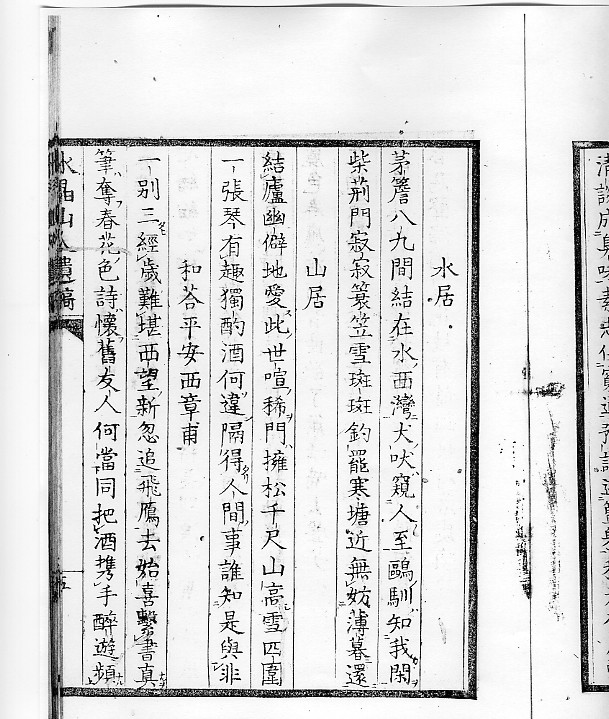 水居
茅簷八九間結在水西灣犬吠窺人至鷗馴知我閑
柴荆門寂寂簑笠雪斑斑釣罷寒塘近無妨薄暮還
山居
結廬幽僻地愛此世喧稀門擁松千尺山高雪四圍
一張琴有趣獨酌酒何違隔得人間事誰知是與非
和荅平安西章甫
一別三經歳難堪西望新忽追飛鴈去始喜繫書真
筆奪春花色詩懷舊友人何當同把酒携手醉遊頻
水晶山人遺稿
五